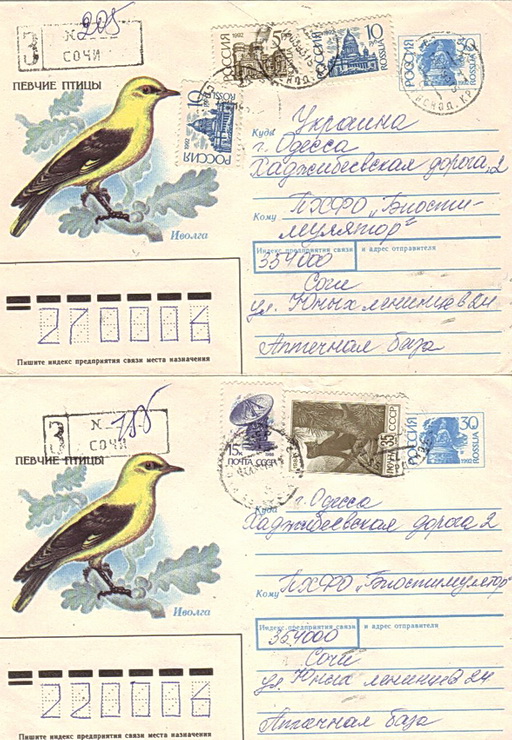 № 205
СОЧИ
ПЕВЧИЕ ПТИЦЫ
Иволга
РОССИЯ 1992 5
РОССИЯ 10 ROSSIJA
РОССИЯ 30 ROSSIJA
РОССИЯ 1992 10 ROSSIJA
Куда Украина
г. Одесса
Хаджибеевская дорога, 2
Кому ПХФО „Биости-
мулятор"
Индекс предприятия связи и адрес отправителя
354000
Сочи
ул. Юных ленинцев 24
Аптечная база
270006
Пишите индекс предприятия связи места назначения
№ 185
СОЧИ
ПЕВЧИЕ ПТИЦЫ
Иволга
15к ПОЧТА СССР
35 ПОЧТА СССР
РОССИЯ 30 ROSSIJA 1992
Куда г. Одесса
Хаджибеевская дорога 2
Кому ПХФО "Биостимулятор"
Индекс предприятия связи и адрес отправителя
354000
Сочи
ул. Юных ленинцев 24
Аптечная база
220006
Пишите индекс предприятия связи места назначения